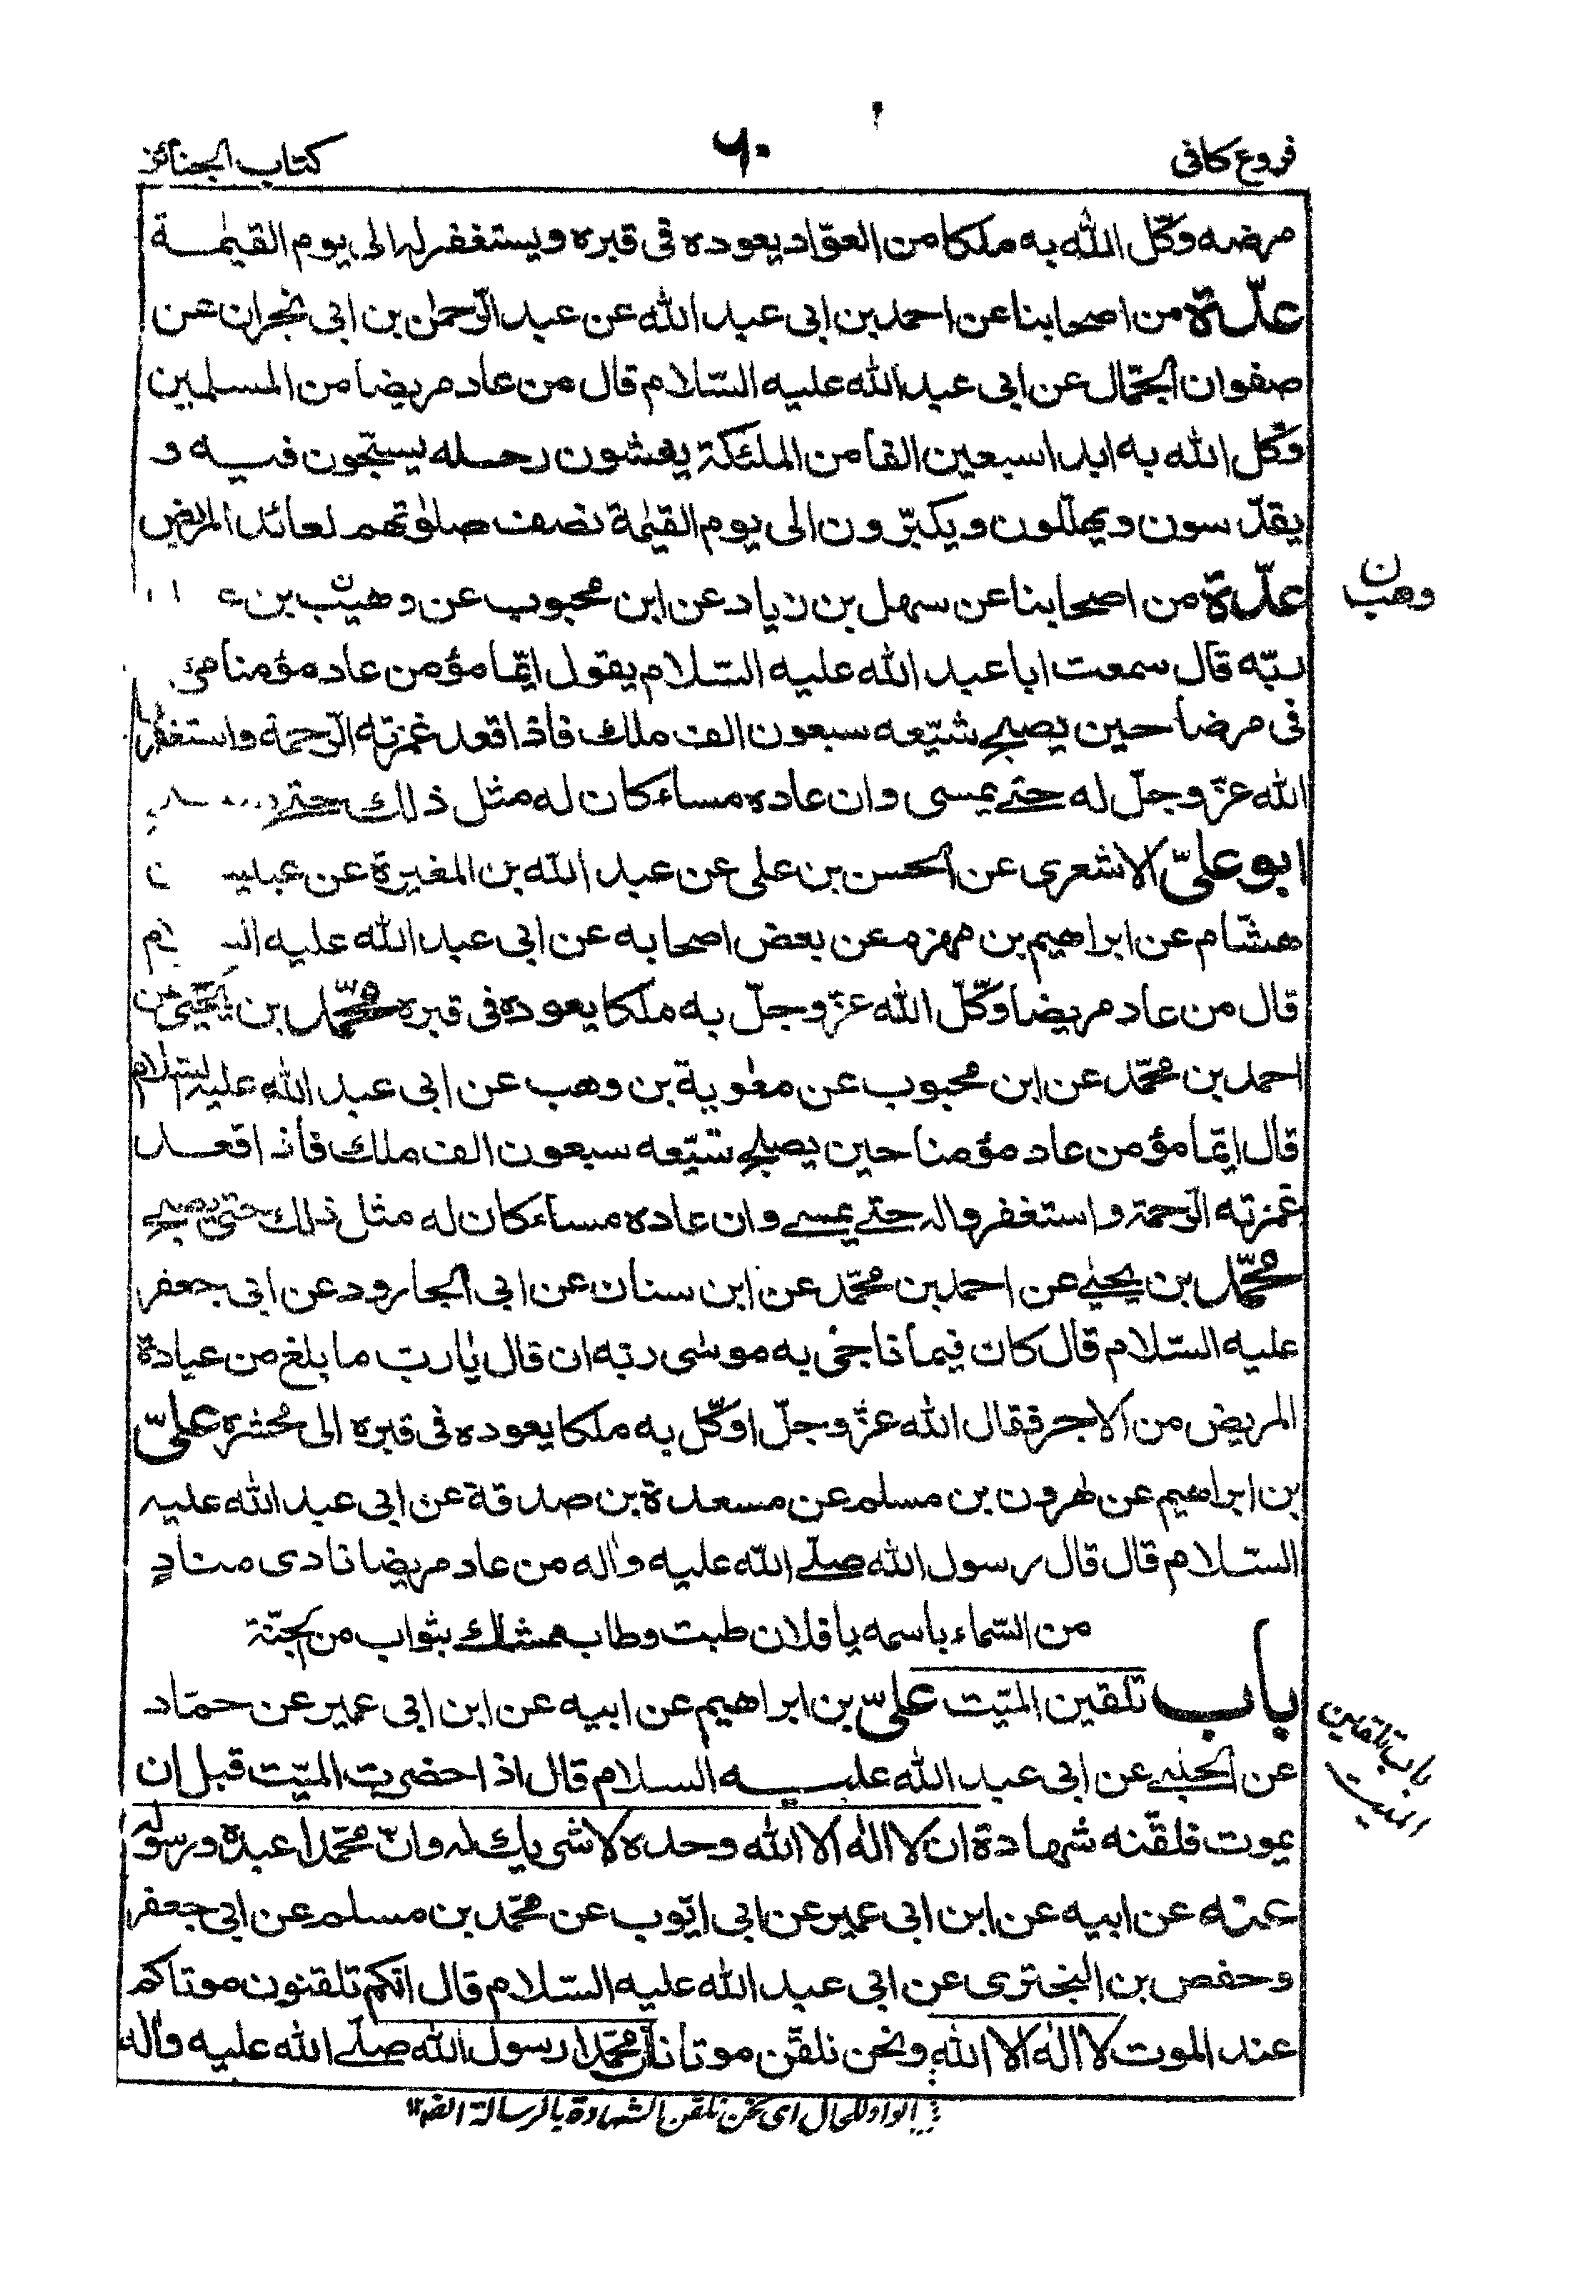 فروع كافى
۶۰
كتاب الجنائز
مرضه وكّل الله به ملكا من العوّاد يعوده فى قبره ويستغفر له الى يوم القيٰمة
عدّة من اصحابنا عن احمد بن ابى عبد الله عن عبد الرّحمٰن بن ابى نجران عن
صفوان الجمّال عن ابى عبد الله عليه السّلام قال من عاد مريضا من المسلمين
وكّل الله به ابدا سبعين الفا من الملئكة يغشون رحله يسبّحون فيه و
يقدّسون ويهلّلون ويكبّرون الى يوم القيٰمة نصف صلوٰتهم لعائد المريض
عدّة من اصحابنا عن سهل بن زياد عن ابن محبوب عن وهيب بن ع
وهب ن
ربّه قال سمعت ابا عبد الله عليه السّلام يقول ايّما مؤمن عاد مؤمنا
فى مرضه حين يصبح شيّعه سبعون الف ملك فاذا قعد غمرته الرّحمة واستغفروا
الله عزّ وجلّ له حتّى يمسى وان عاده مساء كان له مثل ذلك حتى
ابو علىّ الاشعرى عن الحسن بن على عن عبد الله بن المغيرة عن عبيس ن
هشام عن ابراهيم بن مهزم عن بعض اصحابه عن ابى عبد الله عليه السلام
قال من عاد مريضا وكّل الله عزّ وجلّ به ملكا يعوده فى قبره محمّد بن يحيى عن
احمد بن محمّد عن ابن محبوب عن معٰوية بن وهب عن ابى عبد الله عليه السّلام
قال ايّما مؤمن عاد مؤمنا حين يصبح شيّعه سبعون الف ملك فاذا قعد
غمرته الرّحمة واستغفروا له حتّى يمسى وان عاده مساء كان له مثل ذلك حتّى يصبح
محمّد بن يحيٰى عن احمد بن محمّد عن ابن سنان عن ابى الجارود عن ابى جعفر
عليه السّلام قال كان فيما ناجى به موسى ربّه ان قال يٰا ربّ ما بلغ من عيادة
المريض من الاجر فقال الله عزّ وجلّ اوكّل به ملكا يعوده فى قبره الى محشره علىّ
بن ابراهيم عن هٰرون بن مسلم عن مسعدة بن صدقة عن ابى عبد الله عليه
السّلام قال قال رسول الله صلّى الله عليه وآله من عاد مريضا نادى منادٍ
من السّماء باسمه يا فلان طبت وطاب ممشاك بثواب من الجنّة
باب تلقين الميّت علىّ بن ابراهيم عن ابيه عن ابن ابى عمير عن حمّاد
باب تلقين
الميت
عن الحلبى عن ابى عبد الله عليه السلام قال اذا حضرت الميّت قبل ان
يموت فلقّنه شهادة ان لا اله الا الله وحده لا شريك له وانّ محمّدا عبده ورسوله
عنه عن ابيه عن ابن ابى عمير عن ابى ايّوب عن محمّد بن مسلم عن ابى جعفر
وحفص بن البخترى عن ابى عبد الله عليه السّلام قال انّكم تلقنون موتاكم
عند الموت لا اله الا الله ونحن نلقّن موتانا محمّدا رسول الله صلّى الله عليه وآله
الواو للحال اى نحن نلقن الشهادة بالرسالة ايضا ۱۲